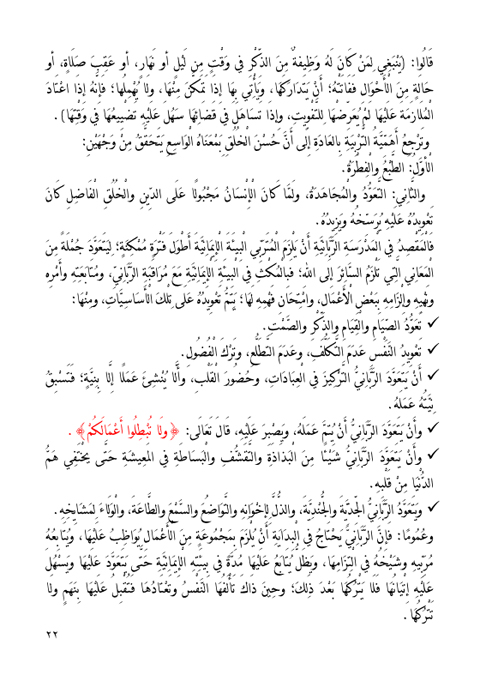 قَالُوا: (يَنْبَغِي لِمَنْ كَانَ لَهُ وَظِيفَةٌ مِنَ الذِّكْرِ فِي وَقْتٍ مِن لَيْلٍ أو نَهَارٍ، أو عَقِبَ صَلَاةٍ، أو
حَالَةٍ مِنَ الْأَحْوَالِ فَفَاتَتْهُ؛ أَنْ يَتَدَارَكَهَا، وَيَأْتِي بِهَا إذَا تَمَكَّنَ مِنْهَا، ولا يُهْمِلُهَا؛ فإنَّهُ إذَا اعْتَادَ
الْمُلَازَمَةَ عَلَيْهَا لَمْ يُعَرِّضْهَا لِلتَّفْوِيتِ، وإذَا تَسَاهَلَ فِي قَضَائِهَا سَهُلَ عَلَيْهِ تَضْيِيعُهَا فِي وَقْتِهَا).
وتَرْجِعُ أَهَمِّيَّةُ التَّرْبِيَةِ بِالعَادَةِ إلى أَنَّ حُسْنَ الْخُلُقِ بِمَعْنَاهُ الْوَاسِعِ يَتَحَقَّقُ مِنْ وَجْهَيْنِ:
الْأَوَّلُ: الطَّبْعُ والْفِطْرَةُ.
والثَّانِي: التَّعَوُّدُ والْمُجَاهَدَةُ، ولَمَّا كَانَ الْإِنْسَانُ مَجْبُولًا عَلَى الدِّينِ والْخُلُقِ الْفَاضِلِ كَانَ
تَعْوِيدُهُ عَلَيْهِ يُرَسِّخُهُ ويَزِيدُهُ.
فَالْمَقْصِدُ فِي الْمَدْرَسَةِ الرَّبَّانِيَّةِ أَنْ يَلْزَمَ الْمُتَرَبِّي الْبِيئَةَ الْإِيمَانِيَّةَ أَطْوَلَ فَتْرَةٍ مُمْكِنَةٍ؛ لِيَتَعَوَّدَ جُمْلَةً مِنَ
الْمَعَانِي الَّتِي تَلْزَمُ السَّائِرَ إلى اللهِ؛ فَبِالْمُكْثِ فِي الْبِيئَةِ الْإِيمَانِيَّةِ مَعَ مُرَاقَبَةِ الرَّبَّانِيِّ، ومُتَابَعَتِهِ وأَمْرِهِ
ونَهْيِهِ وإِلْزَامِهِ بِبَعْضِ الْأَعْمَالِ، وامْتِحَانِ فَهْمِهِ لَهَا؛ يَتِمُّ تَعْوِيدُهُ عَلَى تِلكَ الْأَسَاسِيَّاتِ، ومِنْهَا:
✓ تَعَوُّدُ الصِّيَامِ والْقِيَامِ والذِّكْرِ والصَّمْتِ.
✓ تَعْوِيدُ النَّفْسِ عَدَمَ التَّكَلُّفِ، وعَدَمَ التَّطَلُّعِ، وتَرْكَ الْفُضُولِ.
✓ أَنْ يَتَعَوَّدَ الرَّبَّانِيُّ التَّرْكِيزَ فِي الْعِبَادَاتِ، وحُضُورَ الْقَلْبِ، وأَلَّا يُنْشِئَ عَمَلًا إلَّا بِنِيَّةٍ؛ فَتَسْبِقُ
نِيَّتُهُ عَمَلَهُ.
✓ وأَنْ يَتَعَوَّدَ الرَّبَّانِيُّ أَنْ يُتِمَّ عَمَلَهُ، ويَصْبِرَ عَلَيْهِ، قَالَ تَعَالَى: ﴿ ولا تُبْطِلُوا أَعْمَالَكُمْ ﴾.
✓ وأَنْ يَتَعَوَّدَ الرَّبَّانِيُّ شَيْئًا مِنَ الْبَذَاذَةِ والتَّقَشُّفِ والْبَسَاطَةِ فِي الْمَعِيشَةِ حَتَّى يَخْتَفِيَ هَمُّ
الدُّنْيَا مِنْ قَلْبِهِ.
✓ ويَتَعَوَّدَ الرَّبَّانِيُّ الْجِدِّيَّةَ والْجُنْدِيَّةَ، والذُّلَّ لِإِخْوَانِهِ والتَّوَاضُعَ والسَّمْعَ والطَّاعَةَ، والْوَلَاءَ لِمَشَايِخِهِ.
وعُمُومًا: فإنَّ الرَّبَّانِيَّ يَحْتَاجُ فِي الْبِدَايَةِ أَنْ يُلْزَمَ بِمَجْمُوعَةٍ مِنَ الْأَعْمَالِ يُوَاظِبُ عَلَيْهَا، ويُتَابِعُهُ
مُرَبِّيهِ وشَيْخُهُ فِي الْتِزَامِهَا، ويَظَلُّ يُتَابَعُ عَلَيْهَا مُدَّةً فِي بِيئَتِهِ الْإِيمَانِيَّةِ حَتَّى يَتَعَوَّدَ عَلَيْهَا ويَسْهُلَ
عَلَيْهِ إِتْيَانُهَا فَلَا يَتْرُكُهَا بَعْدَ ذَلِكَ؛ وحِينَ ذَاكَ تَأْلَفُهَا النَّفْسُ وتَعْتَادُهَا فَتُقْبِلُ عَلَيْهَا بِنَهَمٍ ولا
تَتْرُكُهَا.
٢٢